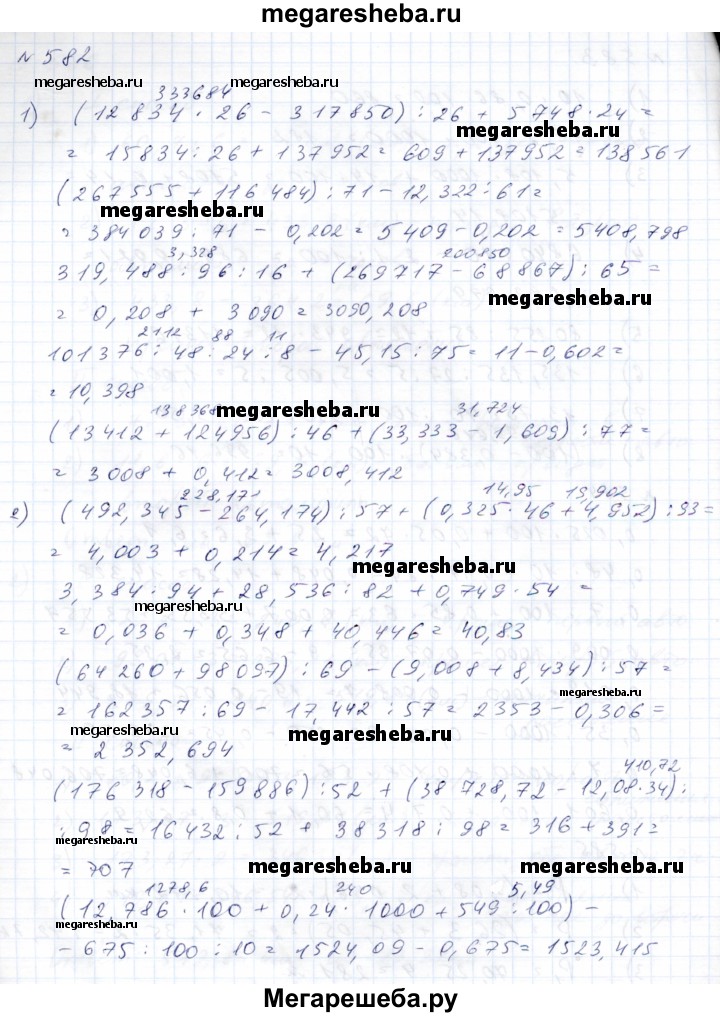 megaresheba.ru
№ 582
megaresheba.ru megaresheba.ru
333684
1) (12 834 · 26 - 317850) : 26 + 5748 · 24 =
megaresheba.ru
= 15834 : 26 + 137952 = 609 + 137952 = 138561
(267555 + 116484) : 71 - 12,322 : 61 =
megaresheba.ru
= 384039 : 71 - 0,202 = 5409 - 0,202 = 5408,798
3,328 200850
319,488 : 96 : 16 + (269717 - 68867) : 65 =
megaresheba.ru
= 0,208 + 3090 = 3090,208
2112 88 11
101376 : 48 : 24 : 8 - 45,15 : 75 = 11 - 0,602 =
= 10,398
138368 megaresheba.ru 31,724
(13412 + 124956) : 46 + (33,333 - 1,609) : 77 =
= 3008 + 0,412 = 3008,412
228,171 14,95 19,902
2) (492,345 - 264,174) : 57 + (0,325 · 46 + 4,952) : 93 =
= 4,003 + 0,214 = 4,217
megaresheba.ru
3,384 : 94 + 28,536 : 82 + 0,749 · 54 =
megaresheba.ru
= 0,036 + 0,348 + 40,446 = 40,83
(64260 + 98097) : 69 - (9,008 + 8,434) : 57 =
megaresheba.ru
= 162357 : 69 - 17,442 : 57 = 2353 - 0,306 =
megaresheba.ru megaresheba.ru
= 2352,694
410,72
(176318 - 159886) : 52 + (38728,72 - 12,08 · 34) :
: 98 = 16432 : 52 + 38318 : 98 = 316 + 391 =
megaresheba.ru
= 707
megaresheba.ru megaresheba.ru
1278,6 240 5,49
(12,786 · 100 + 0,24 · 1000 + 549 : 100) -
- 675 : 100 : 10 = 1524,09 - 0,675 = 1523,415
megaresheba.ru
Мегарешеба.ру